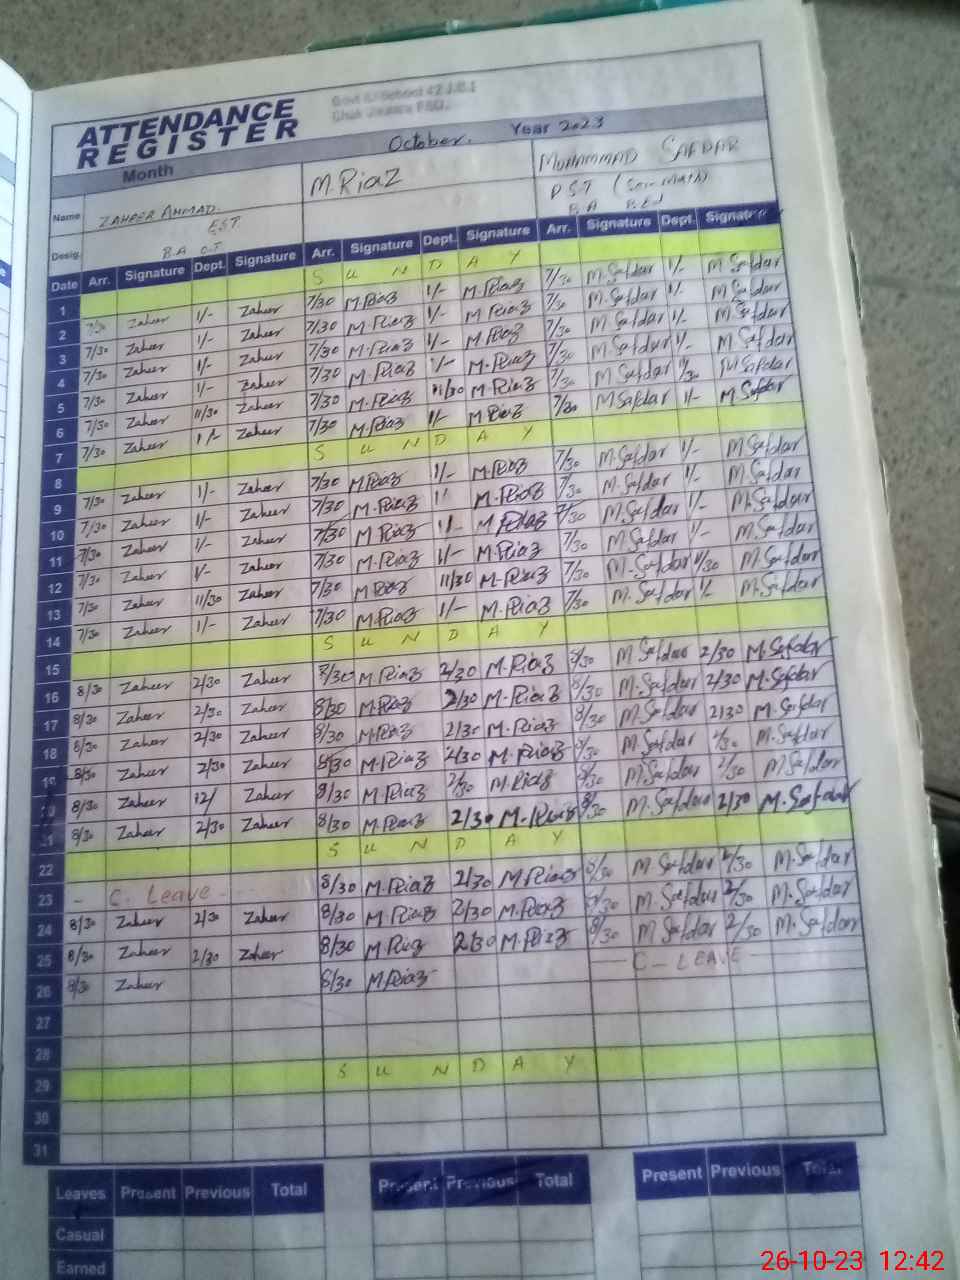 ATTENDANCE
REGISTER
Month October. Year 2023
Name ZAHEER AHMAD. M.Riaz MUHAMMAD SAFDAR
EST PST (Sci-Math)
Desig. B.A C.T B.A B.Ed
Date Arr. Signature Dept. Signature Arr. Signature Dept. Signature Arr. Signature Dept. Signature
1 SUNDAY
2 7/30 Zaheer 1/- Zaheer 7/30 M.Riaz 1/- M.Riaz 7/30 M.Safdar 1/- M.Safdar
3 7/30 Zaheer 1/- Zaheer 7/30 M.Riaz 1/- M.Riaz 7/30 M.Safdar 1/- M.Safdar
4 7/30 Zaheer 1/- Zaheer 7/30 M.Riaz 1/- M.Riaz 7/30 M.Safdar 1/- M.Safdar
5 7/30 Zaheer 1/- Zaheer 7/30 M.Riaz 1/- M.Riaz 7/30 M.Safdar 1/- M.Safdar
6 7/30 Zaheer 11/30 Zaheer 7/30 M.Riaz 11/30 M.Riaz 7/30 M.Safdar 11/30 M.Safdar
7 7/30 Zaheer 1/- Zaheer 7/30 M.Riaz 1/- M.Riaz 7/30 M.Safdar 1/- M.Safdar
8 SUNDAY
9 7/30 Zaheer 1/- Zaheer 7/30 M.Riaz 1/- M.Riaz 7/30 M.Safdar 1/- M.Safdar
10 7/30 Zaheer 1/- Zaheer 7/30 M.Riaz 1/- M.Riaz 7/30 M.Safdar 1/- M.Safdar
11 7/30 Zaheer 1/- Zaheer 7/30 M.Riaz 1/- M.Riaz 7/30 M.Safdar 1/- M.Safdar
12 7/30 Zaheer 1/- Zaheer 7/30 M.Riaz 1/- M.Riaz 7/30 M.Safdar 1/- M.Safdar
13 7/30 Zaheer 11/30 Zaheer 7/30 M.Riaz 11/30 M.Riaz 7/30 M.Safdar 11/30 M.Safdar
14 7/30 Zaheer 1/- Zaheer 7/30 M.Riaz 1/- M.Riaz 7/30 M.Safdar 1/- M.Safdar
15 SUNDAY
16 8/30 Zaheer 2/30 Zaheer 8/30 M.Riaz 2/30 M.Riaz 8/30 M.Safdar 2/30 M.Safdar
17 8/30 Zaheer 2/30 Zaheer 8/30 M.Riaz 2/30 M.Riaz 8/30 M.Safdar 2/30 M.Safdar
18 8/30 Zaheer 2/30 Zaheer 8/30 M.Riaz 2/30 M.Riaz 8/30 M.Safdar 2/30 M.Safdar
19 8/30 Zaheer 2/30 Zaheer 8/30 M.Riaz 2/30 M.Riaz 8/30 M.Safdar 2/30 M.Safdar
20 8/30 Zaheer 12/ Zaheer 8/30 M.Riaz 2/30 M.Riaz 8/30 M.Safdar 2/30 M.Safdar
21 8/30 Zaheer 2/30 Zaheer 8/30 M.Riaz 2/30 M.Riaz 8/30 M.Safdar 2/30 M.Safdar
22 SUNDAY
23 - C. Leave - 8/30 M.Riaz 2/30 M.Riaz 8/30 M.Safdar 2/30 M.Safdar
24 8/30 Zaheer 2/30 Zaheer 8/30 M.Riaz 2/30 M.Riaz 8/30 M.Safdar 2/30 M.Safdar
25 8/30 Zaheer 2/30 Zaheer 8/30 M.Riaz 2/30 M.Riaz 8/30 M.Safdar 2/30 M.Safdar
26 8/30 Zaheer 8/30 M.Riaz — C - LEAVE -
27
28
29 SUNDAY
30
31
Leaves Present Previous Total Present Previous Total Present Previous Total
Casual
Earned
26-10-23 12:42